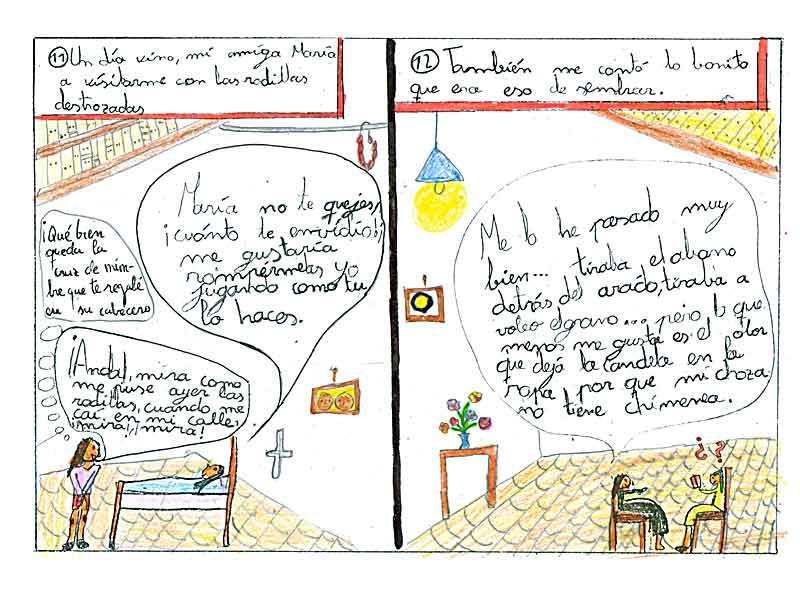 11 Un día vino, mi amiga María
a visitarme con las rodillas
destrozadas
María no te quejes,
¡cuánto te envidio!,
me gustaría
rompérmelas yo
jugando como tu
lo haces.
¡Qué bien
queda la
cruz de mim-
bre que te regale
en su cabecero
¡Anda!, mira como
me puse ayer las
rodillas, cuando me
caí en mi calle,
¡mira!, ¡mira!
12 También me contó lo bonito
que era eso de sembrar.
Me lo he pasado muy
bien... tiraba el abono
detrás del arado, tiraba a
voleo el grano... pero lo que
menos me gusta es el olor
que dejá la candela en la
ropa por que mi choza
no tiene chimenea.
¿?